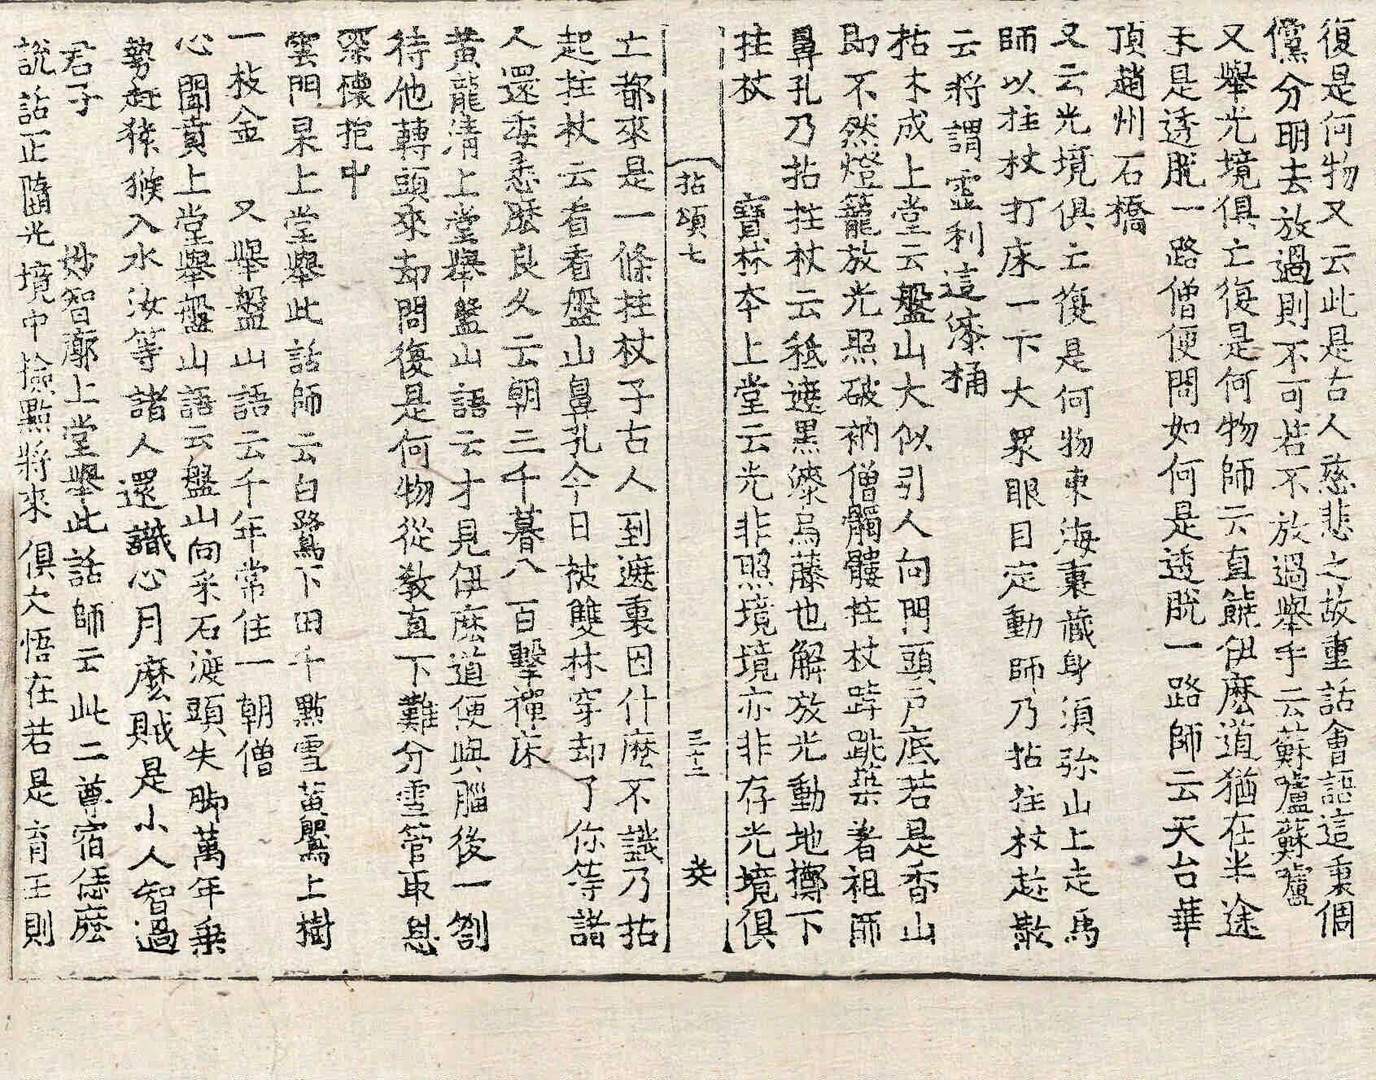 復是何物又云此是古人慈悲之故重話會語這裏個
儻分明去放過則不可若不放過擧手云蘇嚧蘇嚧
又擧光境俱亡復是何物師云直饒伊麽道猶在半途
未是透脫一路僧便問如何是透脫一路師云天台華
頂趙州石橋
又云光境俱亡復是何物東海裏藏身須弥山上走馬
師以拄杖打床一下大眾眼目定動師乃拈拄杖趁散
云將謂靈利這漆桶
枯木成上堂云盤山大似引人向門頭戶底若是香山
即不然燈籠放光照破衲僧髑髏拄杖𨁝跳築著祖師
鼻孔乃拈拄杖云秪遮黑漆烏藤也解放光動地擲下
拄杖　寶林夲上堂云光非照境境亦非存光境俱
拈頌七　三十二　癸
亡都來是一條拄杖子古人到遮裏因什麽不識乃拈
起拄杖云看看盤山鼻孔今日被雙林穿却了你等諸
人還委悉麽良久云朝三千暮八百擊禪床
黃龍清上堂擧盤山語云才見伊麽道便與腦後一劄
待他轉頭來却問復是何物從教直下難分雪管取息
深懷抱中
雲門杲上堂擧此話師云白鷺下田千點雪黃鸎上樹
一枝金　又擧盤山語云千年常住一朝僧
心聞賁上堂擧盤山語云盤山向采石渡頭失脚萬年乗
勢赶猿猴入水汝等諸人還識心月麽賊是小人智過
君子　妙智廓上堂擧此話師云此二尊宿恁麽
說話正隨光境中撿點將來俱欠悟在若是育王則